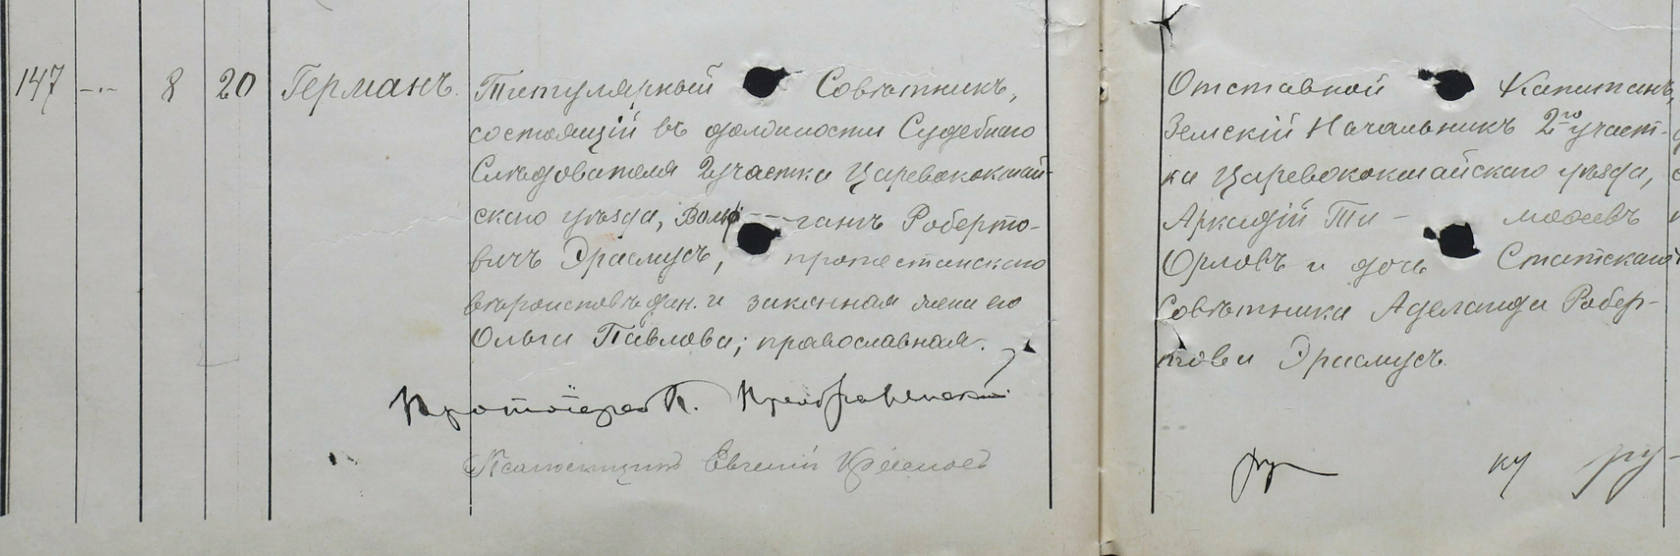 147 -.- 8 20 Германъ.
Титулярный Совѣтникъ,
состоящій въ должности Судебнаго
Слѣдователя 2 участка Царевококшай-
скаго уѣзда, Вольф---гангъ Роберто-
вичъ Эрасмусъ, протестанскаго
вѣроисповѣдан. и законная жена его
Ольга Павлова; православная.
Протоіерей П. Преображенскій
Псаломщикъ Евгеній
Отставной Капитанъ,
Земскій Начальникъ 2го участ-
ка Царевококшайскаго уѣзда,
Аркадій Ти- моѳеевъ
Орловъ и дочь Статскаго
Совѣтника Аделаида Робер-
това Эрасмусъ.
ру ку ру-